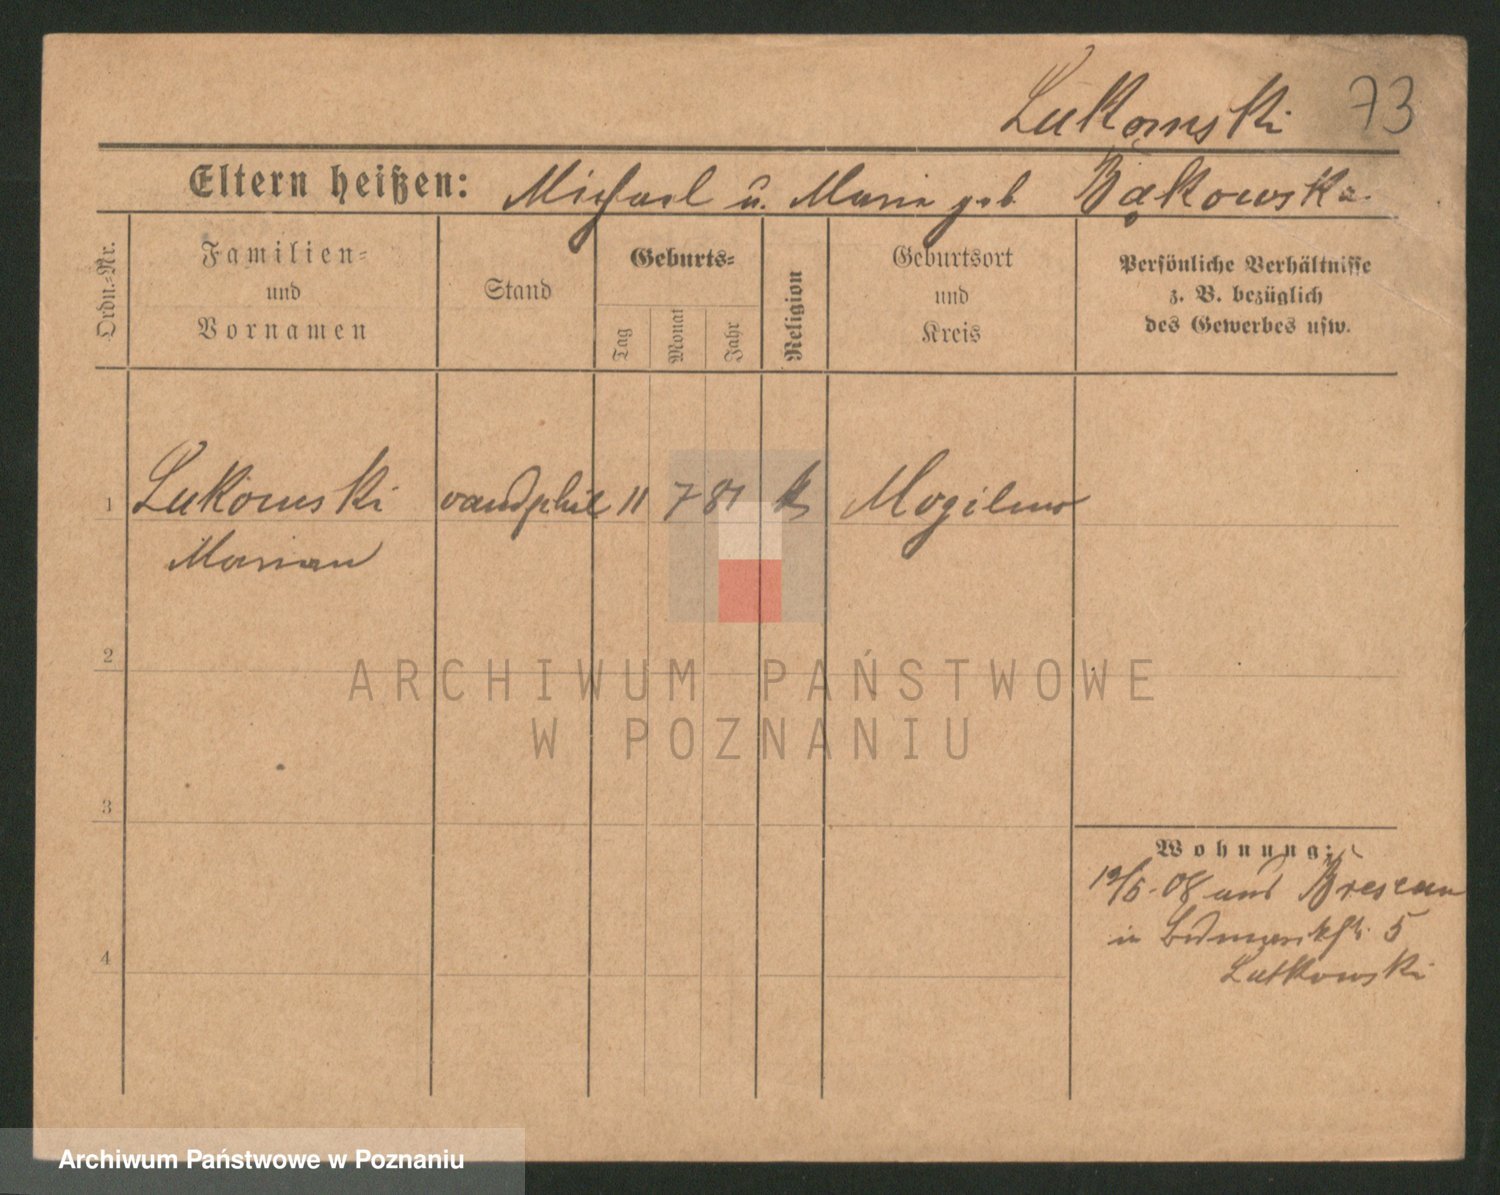 Lukomski 73
Eltern heißen: Michael u. Maria geb Bąkowska.
Ordn.-Nr.
Familien-
und
Vornamen
Stand
Geburts-
Tag
Monat
Jahr
Religion
Geburtsort
und
Kreis
Persönliche Verhältnisse
z. B. bezüglich
des Gewerbes usw.
1 Lukomski cand phil 11 7 81 k Mogilno
Marian
2
3
4
Wohnung:
08 aus Breslau
in 5
Lutkowski
ARCHIWUM PAŃSTWOWE
W POZNANIU
Archiwum Państwowe w Poznaniu